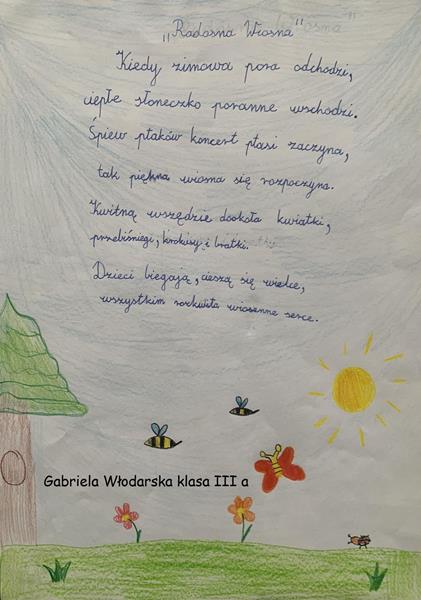 „Radosna Wiosna"
Kiedy zimowa pora odchodzi,
ciepłe słoneczko poranne wschodzi.
Śpiew ptaków koncert ptasi zaczyna,
tak piękna wiosna się rozpoczyna.
Kwitną wszędzie dookoła kwiatki,
przebiśniegi, krokusy i bratki.
Dzieci biegają, cieszą się wielce,
wszystkim rozkwita wiosenne serce.
Gabriela Włodarska klasa III a